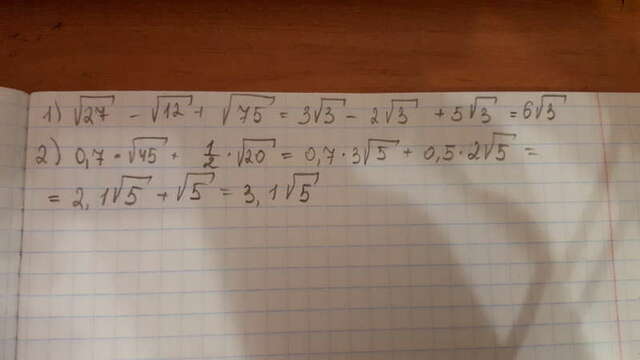 1) √27 - √12 + √75 = 3√3 - 2√3 + 5√3 = 6√3
2) 0,7 · √45 + 1/2 · √20 = 0,7 · 3√5 + 0,5 · 2√5 =
= 2,1√5 + √5 = 3,1√5